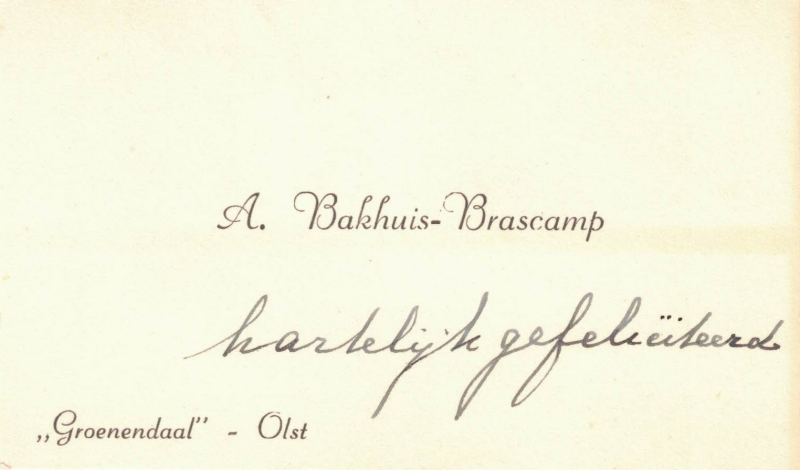 A. Bakhuis-Brascamp
hartelijk gefeliciteerd
„Groenendaal” - Olst